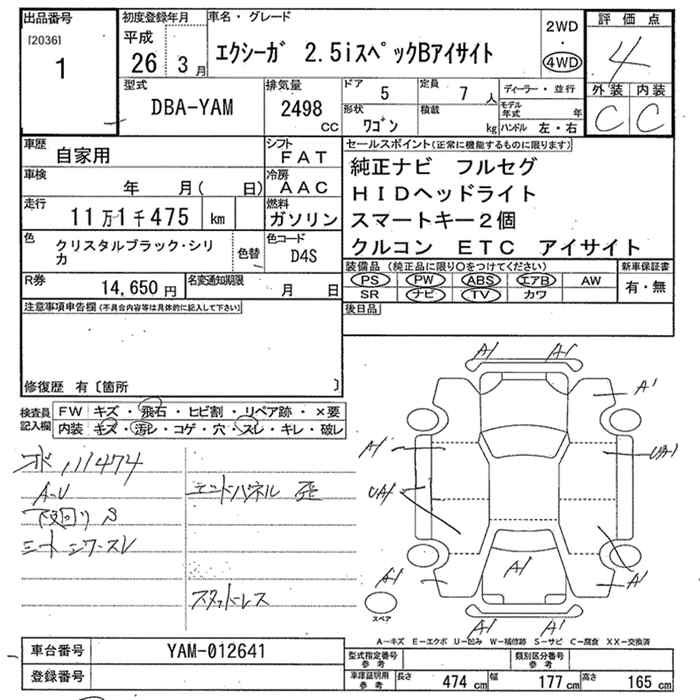 出品番号
[2036]
1
初度登録年月
平成
26 3月
車名・グレード
エクシーガ 2.5iスペックBアイサイト
2WD
・
4WD
評価点
4
外装 内装
C C
型式
DBA-YAM
排気量
2498
CC
ドア 5
定員 7人
形状 ワゴン
積載 kg
ディーラー・並行
モデル年式 年
ハンドル 左・右
車歴
自家用
シフト
FAT
車検 年 月( 日)
冷房
AAC
走行 11万1千475 km
燃料
ガソリン
色
クリスタルブラック・シリカ
色替
色コード
D4S
R券 14,650円
名変通知期限 月 日
セールスポイント(正常に機能するものに限ります)
純正ナビ フルセグ
HIDヘッドライト
スマートキー2個
クルコン ETC アイサイト
装備品(純正品に限り○をつけてください)
PS PW ABS エアB AW
SR ナビ TV カワ
新車保証書
有・無
後日品
注意事項申告欄(不具合内容等は具体的に記入して下さい)
修復歴 有〔箇所 〕
検査員記入欄
FW キズ・飛石・ヒビ割・リペア跡・×要
内装 キズ・汚レ・コゲ・穴・スレ・キレ・破レ
オド 111474
A-U
エンドパネル 歪
下回り S
シート シワ・スレ
スタッドレス
A1 A1
A1
A1 U(A)
UA1
A1 A1 A1
A1 A1
スペア
A-キズ E-エクボ U-凹み W-補修跡 S-サビ C-腐食 XX-交換済
車台番号 YAM-012641
登録番号
型式指定番号 参考
類別区分番号 参考
車庫証明用 参考
長さ 474cm 幅 177cm 高さ 165cm